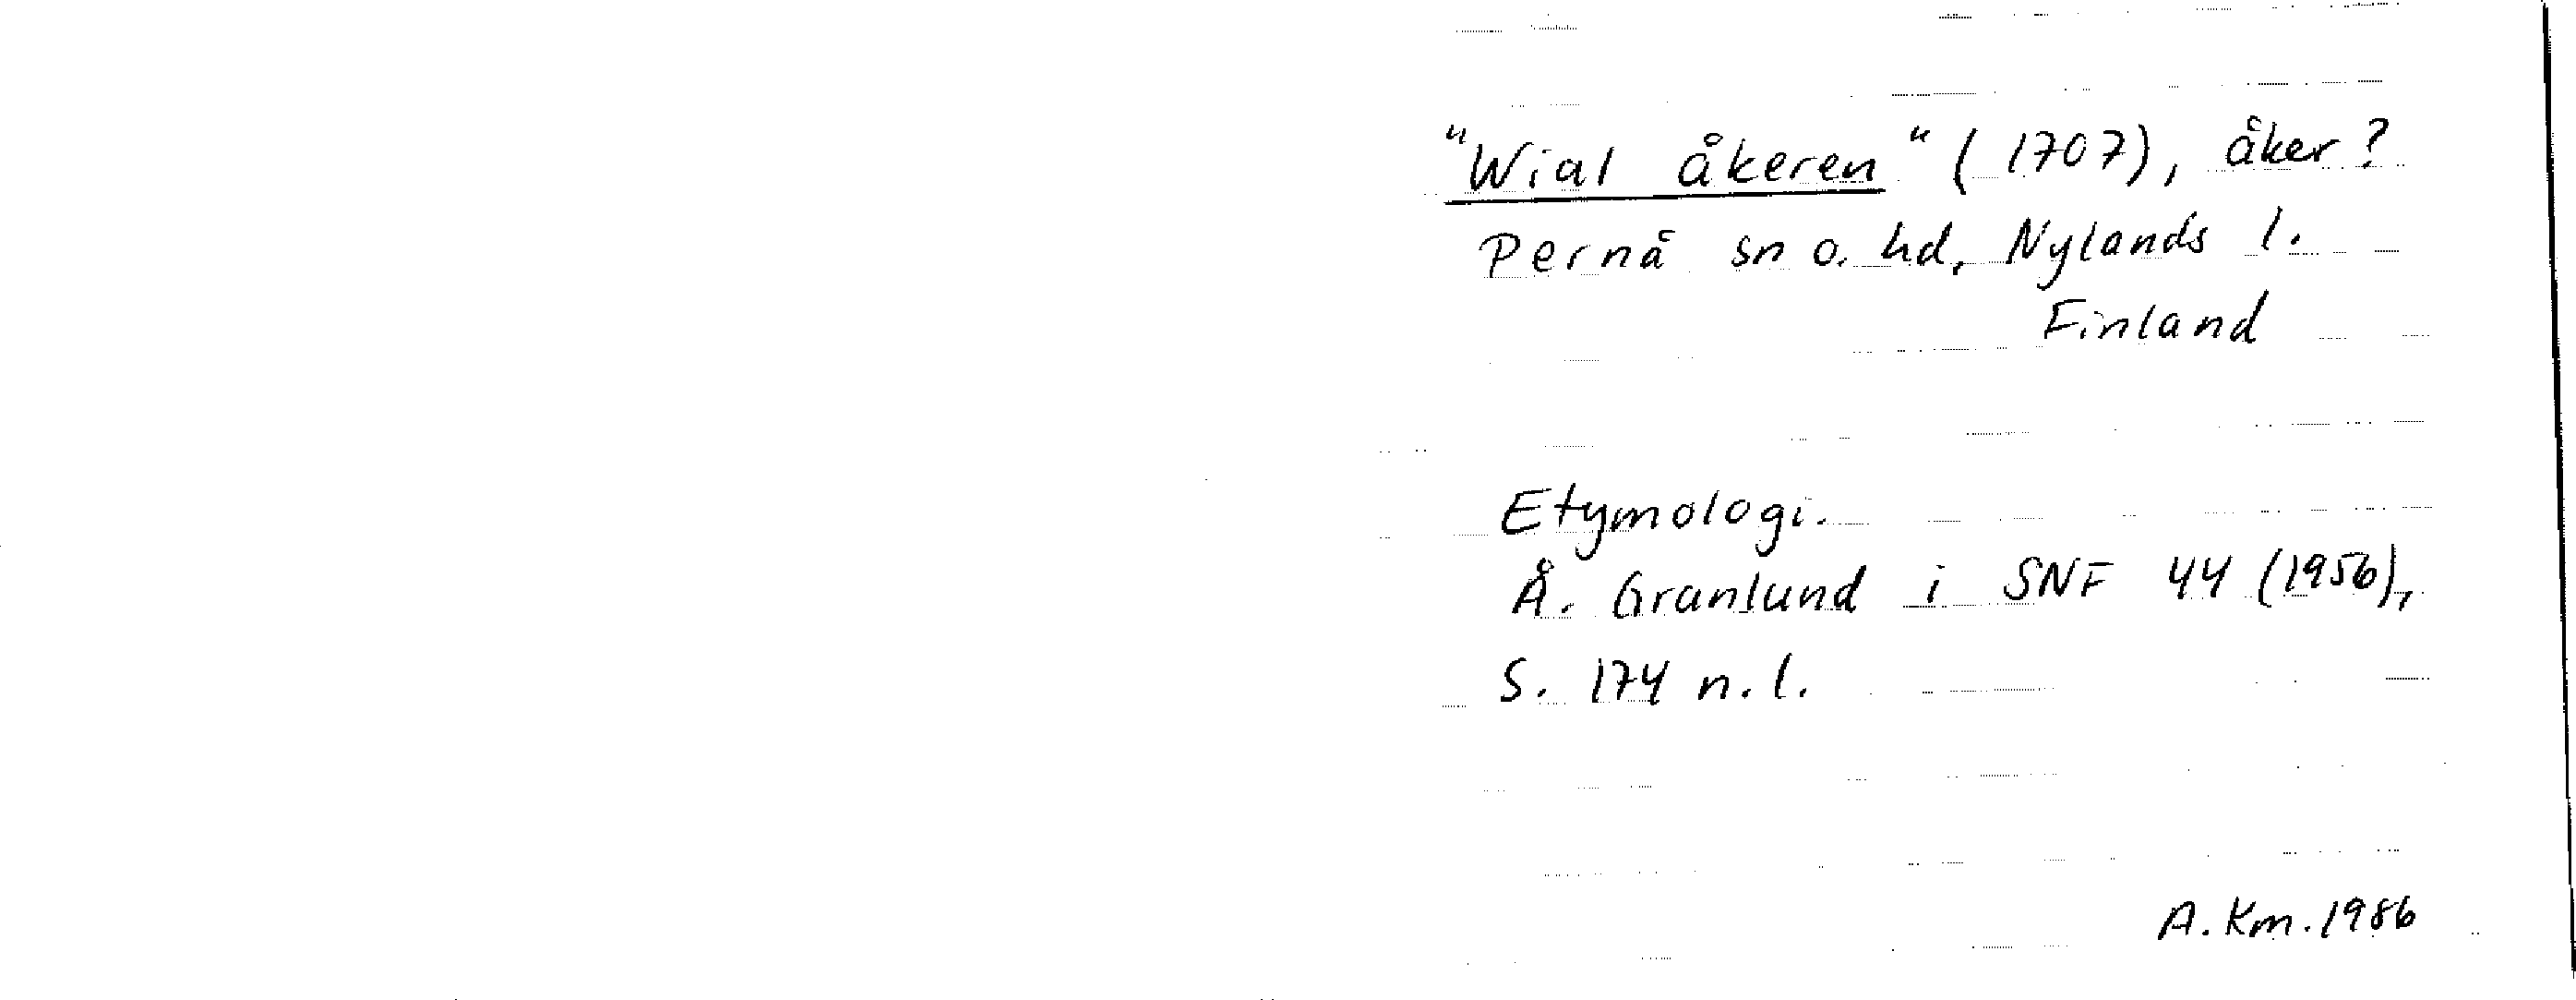 "Wial åkeren" (1707), åker?
Pernå sn o. hd, Nylands l.
Finland
Etymologi.
Å. Granlund i SNF 44 (1956),
S. 174 n.l.
A. Km. 1986